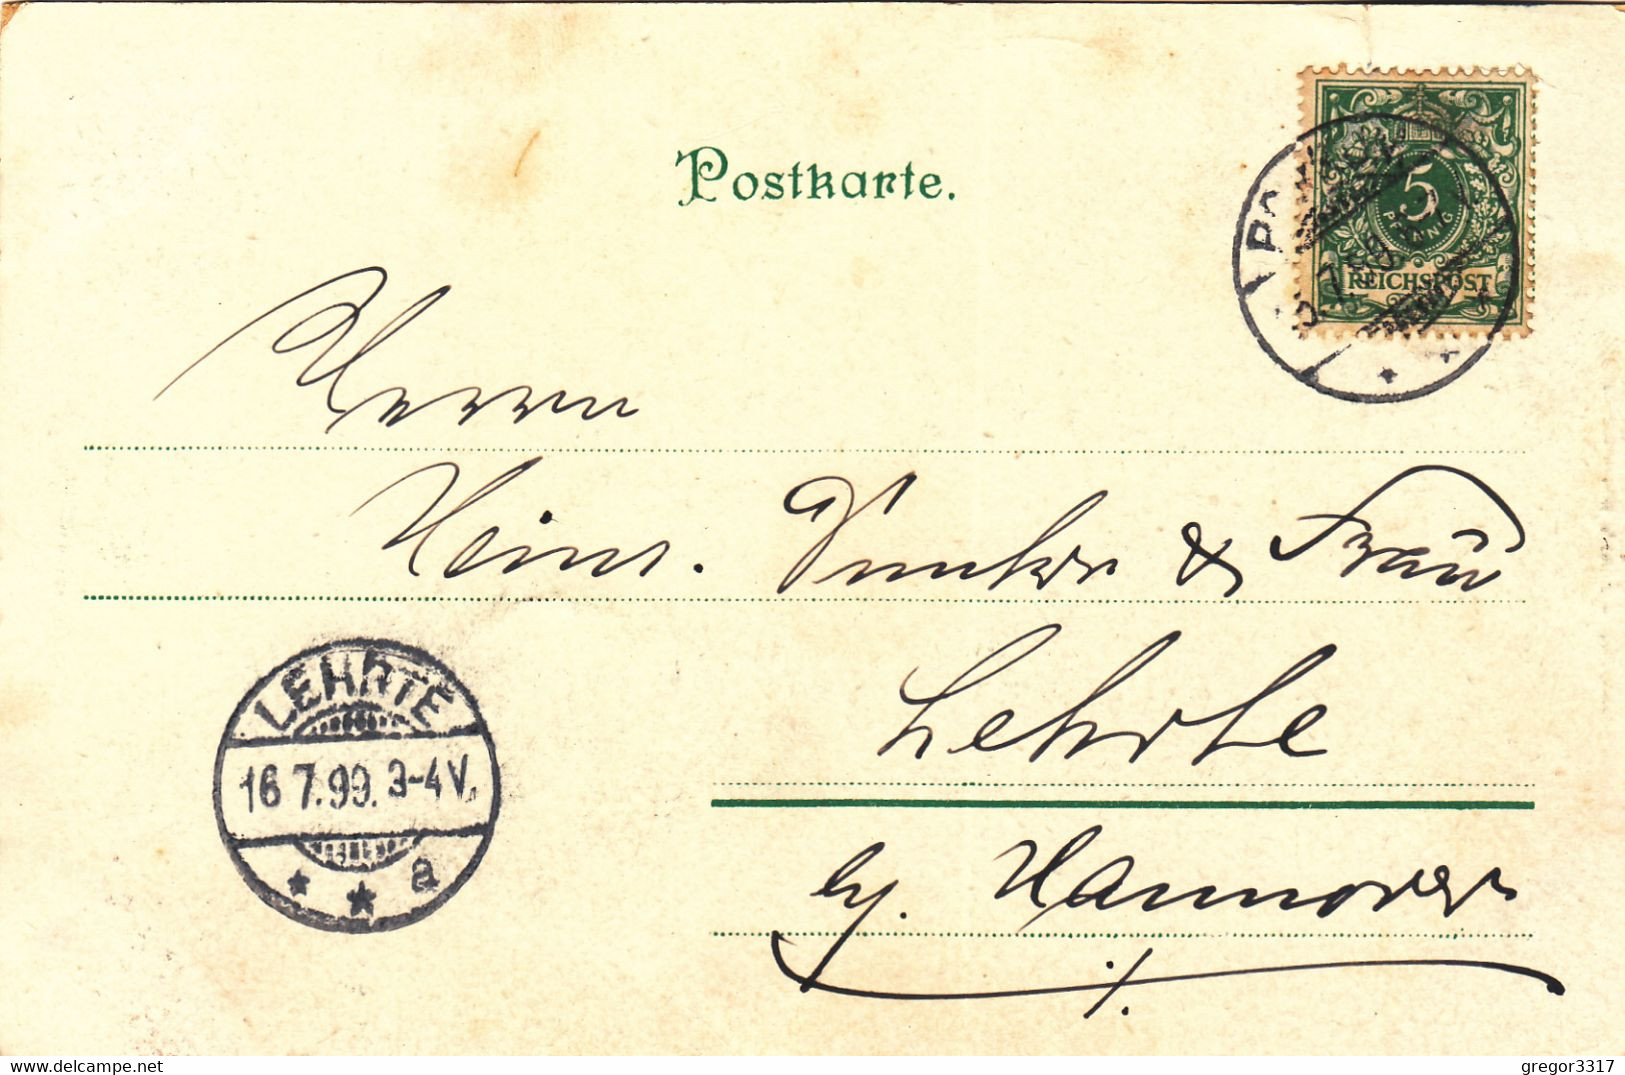 Postkarte.
5
PFENNIG
REICHSPOST
Herrn
Heinr. Dunker & Frau
Lehrte
LEHRTE
16 7.99. 3-4 V.
a
by. Hannover
delcampe.net
gregor3317